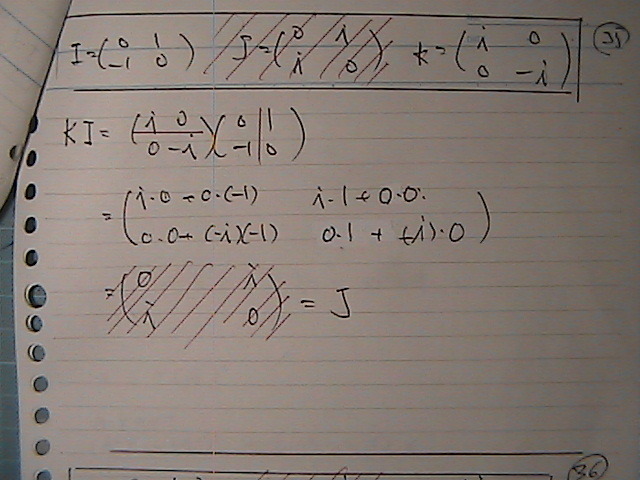 I = ( 0 1 / -1 0 ) J = ( 0 i / i 0 ) K = ( i 0 / 0 -i ) 35
KI = ( i 0 / 0 -i ) ( 0 1 / -1 0 )
= ( i·0 + 0·(-1) i·1 + 0·0 / 0·0 + (-i)(-1) 0·1 + (-i)·0 )
= ( 0 i / i 0 ) = J
36